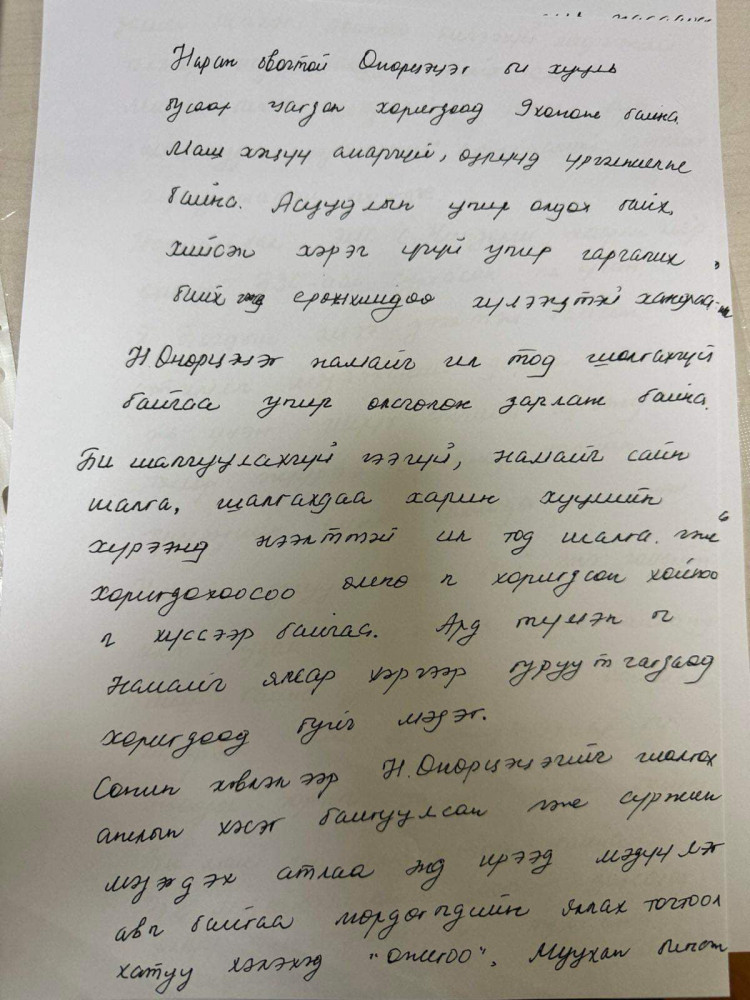 Наран овогтой Онорцэцэг би хууль
бусаар цагдан хоригдоод 9 хоноже байна.
Маш хэцүү амаргүй, өдрүүд үргэлжилже
байна. Асуудлын учир олдох байх,
хийсэн хэрэг үгүй учир гаргалих
байх гэж ерөнхийдөө хүлээцтэй хандлаа
Н.Онорцэцэг намайг ил тод шалгахгүй
байгаа учир өлсгөлөн зарлаж байна.
Би шалгуулахгүй гээгүй, намайг сайн
шалга, шалгахдаа харин хуулийн
хүрээнд нээлттэй ил тод шалга гэж
хоригдохоосоо өмнө ч хоригдсон хойноо
ч хүссээр байгаа. Ард түмэн ч
намайг ямар хэргээр буруутгагдаад
хоригдоод буйг мэдэг.
Сонин хэвлэлээр Н.Онорцэцэгийг шалгах
ажлын хэсэг байгуулсан гэже сүржин
мэдэгдэх атлаа энд ирээд мэдүүлэг
авч байгаа мөрдөгчдийн яллах тогтоол
хатуу хэлэхэд "онигоо". Муухан бичиж